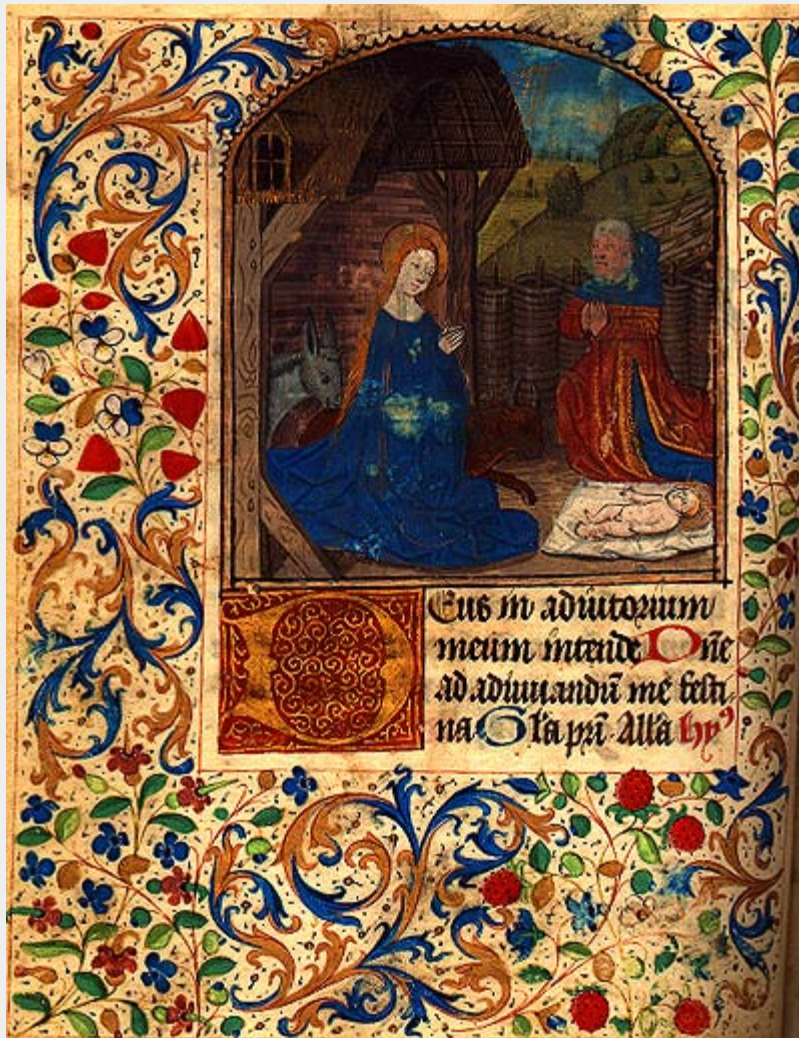 Deus in adiutorium
meum intende Dñe
ad adiuuandū me festi
na Gľa pr̄i Alľa hyꝰ